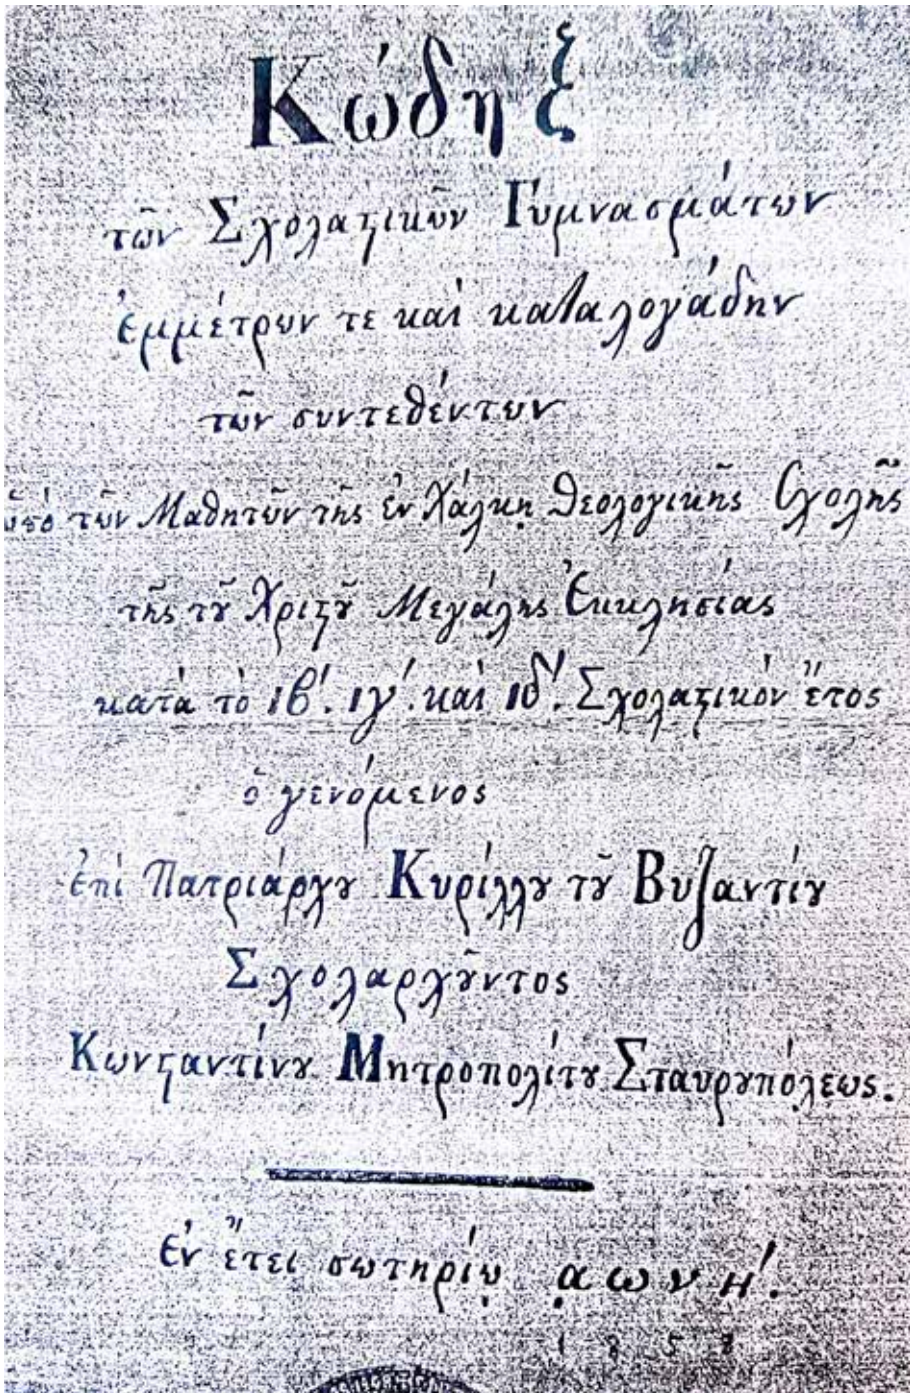 Κώδηξ
τῶν Σχολαϛικῶν Γυμνασμάτων
ἐμμέτρων τε καὶ καταλογάδην
τῶν συντεθέντων
ὑπὸ τῶν Μαθητῶν τῆς ἐν Χάλκῃ Θεολογικῆς Σχολῆς
τῆς τȣ͂ Χριϛȣ͂ Μεγάλης Ἐκκλησίας
κατὰ τὸ ιβʹ. ιγʹ. καὶ ιδʹ. Σχολαϛικὸν ἔτος
ὁ γενόμενος
ἐπὶ Πατριάρχȣ Κυρίλλȣ τȣ͂ Βυζαντίȣ
Σχολαρχȣ͂ντος
Κωνϛαντίνȣ Μητροπολίτȣ Σταυρȣπόλεως.
ἐν ἔτει σωτηρίῳ ͵αωνηʹ.
1858